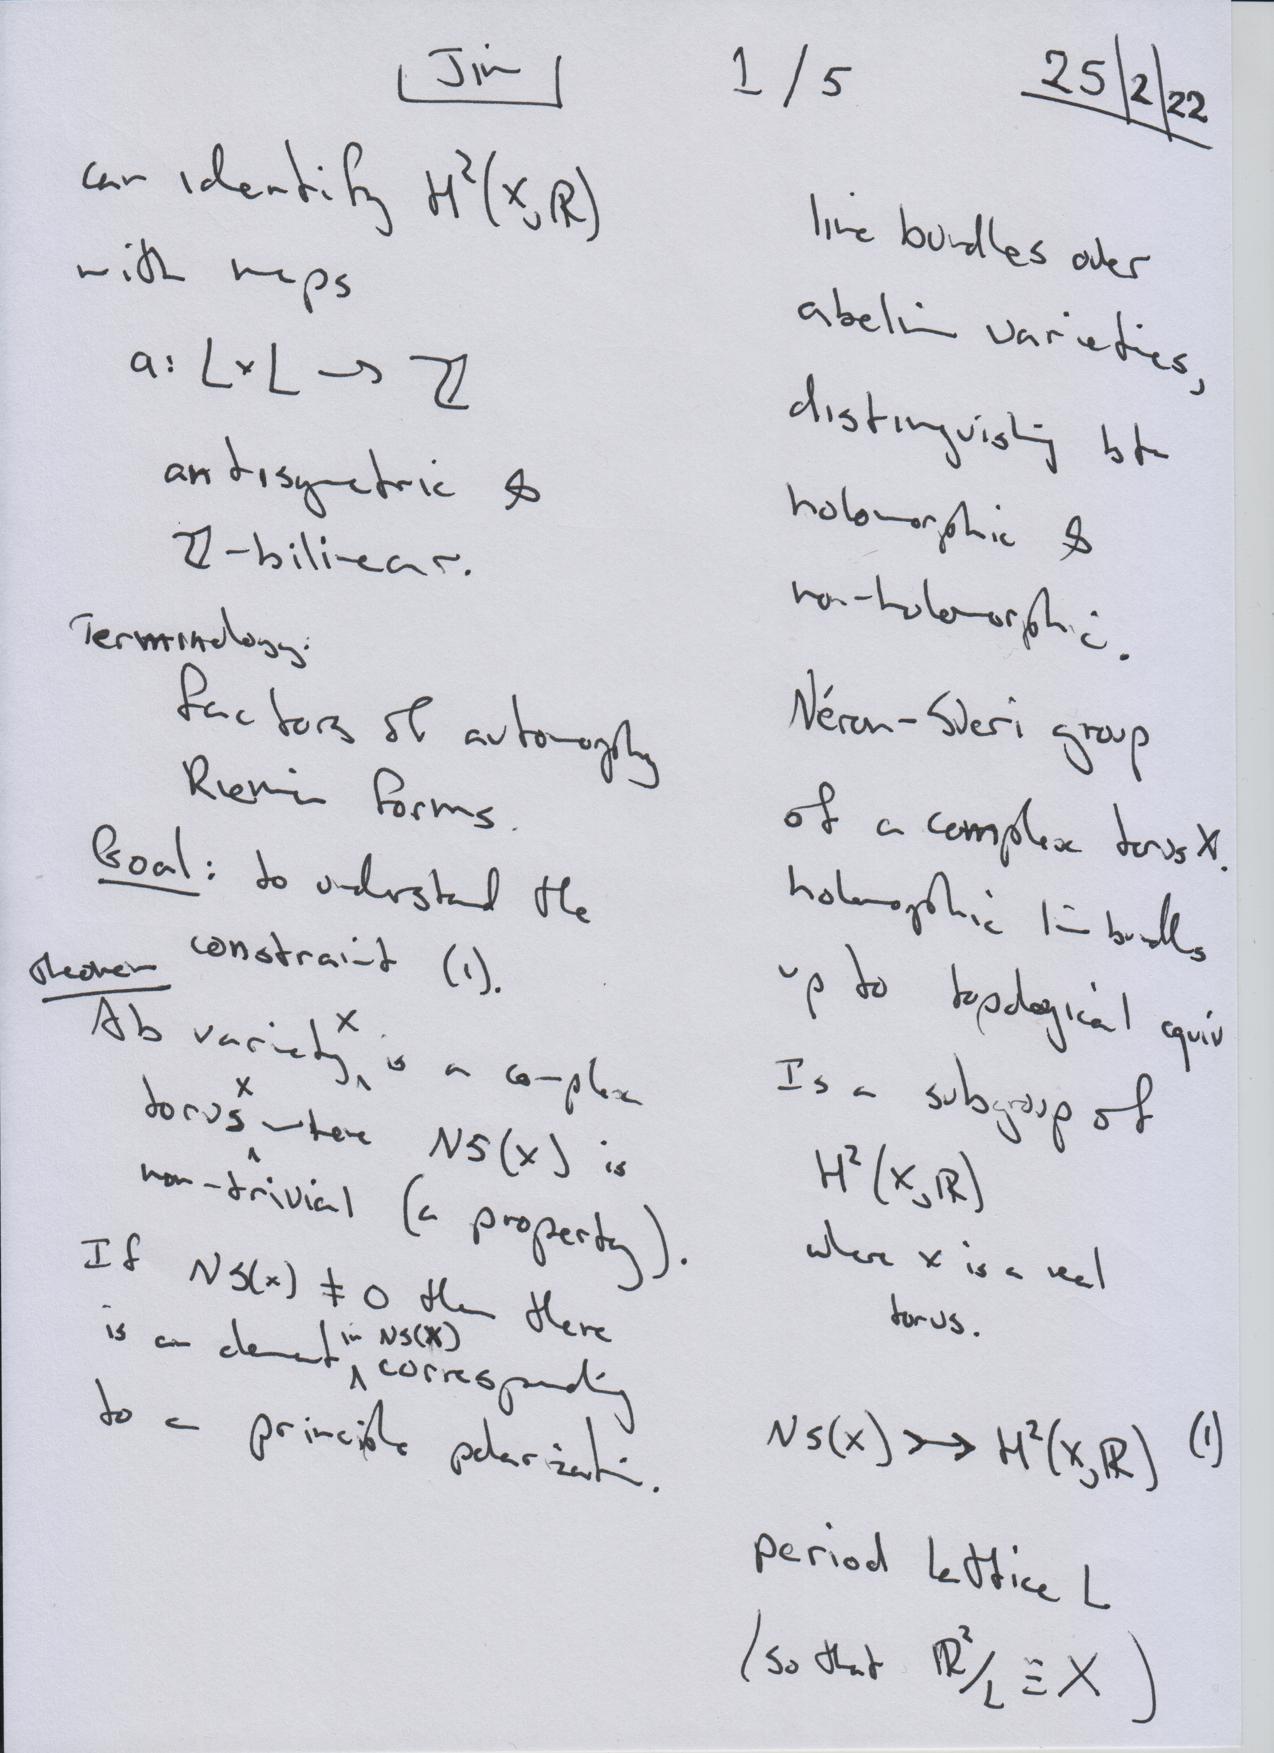 Jim 1/5 25/2/22
can identify H²(X,ℝ)
with maps
a: L×L → ℤ
antisymetric &
ℤ-bilinear.
Terminology:
factors of automorphy
Riemann forms.
Goal: to understand the
constraint (1).
Theorem
Ab variety X is a complex
torus X where NS(X) is
non-trivial (a property).
If NS(X) ≠ 0 then there
is an element in NS(X) corresponding
to a principle polarization.
line bundles over
abelian varieties,
distinguishing btn
holomorphic &
non-holomorphic.
Néron-Severi group
of a complex torus X.
holomorphic line bundles
up to topological equiv
Is a subgroup of
H²(X,ℝ)
where X is a real
torus.
NS(X) ↣ H²(X,ℝ) (1)
period lattice L
(so that ℝ²/L ≅ X)